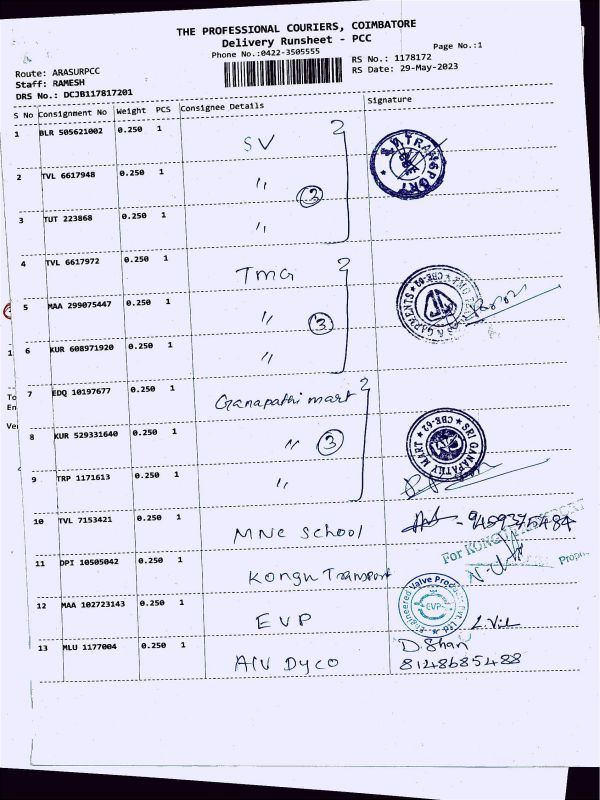 THE PROFESSIONAL COURIERS, COIMBATORE
Delivery Runsheet - PCC
Phone No.:0422-3505555
Page No.:1
Route: ARASURPCC
Staff: RAMESH
DRS No.: DCJB117817201
RS No.: 1178172
RS Date: 29-May-2023
S No Consignment No Weight PCS Consignee Details Signature
1 BLR 505621002 0.250 1 SV
2 TVL 6617948 0.250 1 " 3
3 TUT 223868 0.250 1 "
TRANSPORT
4 TVL 6617972 0.250 1 TMG
5 MAA 299075447 0.250 1 " 3
6 KUR 608971920 0.250 1 "
GARMENTS * CBE-62 * TMG
7 EDQ 10197677 0.250 1 Ganapathi mart
8 KUR 529331640 0.250 1 " 3
9 TRP 1171613 0.250 1 "
SRI GANAPATHY MART * CBE-62 *
10 TVL 7153421 0.250 1 MNC School - 9459375484
11 DPI 10505042 0.250 1 Kongu Transport
For KONGU TRANSPORT
Propri
12 MAA 102723143 0.250 1 EVP
Engineered Valve Products Pvt. Ltd.
EVP
13 MLU 1177004 0.250 1 A/V Dyco D. Shan
8148685488
To
En
Ve